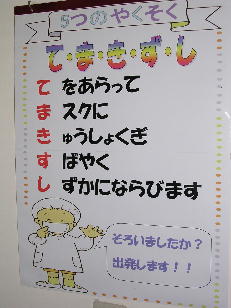 5つのやくそく
て・ま・き・ず・し
て をあらって
ま スクに
き ゅうしょくぎ
す ばやく
し ずかにならびます
そろいましたか？
出発します！！